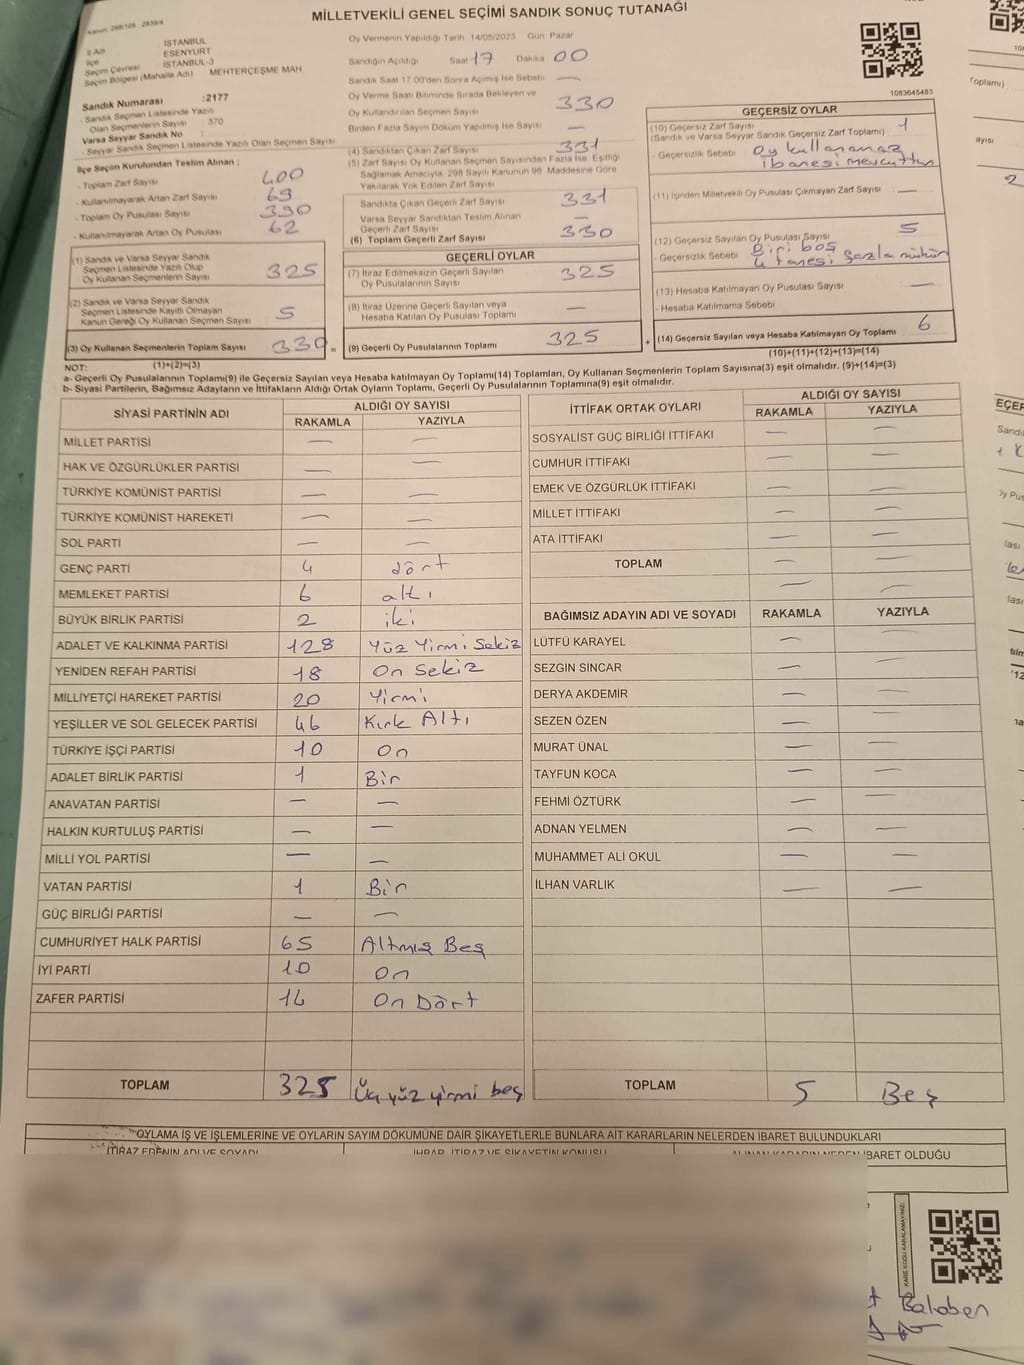 MİLLETVEKİLİ GENEL SEÇİMİ SANDIK SONUÇ TUTANAĞI
Kanun: 298/105
İl Adı : İSTANBUL
İlçe : ESENYURT
Seçim Çevresi : İSTANBUL-3
Seçim Bölgesi (Mahalle Adı) : MEHTERÇEŞME MAH
Sandık Numarası : 2177
- Sandık Seçmen Listesinde Yazılı
Olan Seçmenlerin Sayısı : 370
Varsa Seyyar Sandık No :
- Seyyar Sandık Seçmen Listesinde Yazılı Olan Seçmen Sayısı
İlçe Seçim Kurulundan Teslim Alınan ;
- Toplam Zarf Sayısı 400
- Kullanılmayarak Artan Zarf Sayısı 69
- Toplam Oy Pusulası Sayısı 390
- Kullanılmayarak Artan Oy Pusulası 62
(1) Sandık ve Varsa Seyyar Sandık
Seçmen Listesinde Yazılı Olup
Oy Kullanan Seçmenlerin Sayısı 325
(2) Sandık ve Varsa Seyyar Sandık
Seçmen Listesinde Kayıtlı Olmayan
Kanun Gereği Oy Kullanan Seçmen Sayısı 5
(3) Oy Kullanan Seçmenlerin Toplam Sayısı 330 =
(1)+(2)=(3)
Oy Vermenin Yapıldığı Tarih 14/05/2023 Gün Pazar
Sandığın Açıldığı Saat 17 Dakika 00
Sandık Saat 17:00'den Sonra Açılmış İse Sebebi —
Oy Verme Saati Bitiminde Sırada Bekleyen ve
Oy Kullandırılan Seçmen Sayısı 330
Birden Fazla Sayım Döküm Yapılmış İse Sayısı —
(4) Sandıktan Çıkan Zarf Sayısı 331
(5) Zarf Sayısı Oy Kullanan Seçmen Sayısından Fazla İse, Eşitliği
Sağlamak Amacıyla, 298 Sayılı Kanunun 98. Maddesine Göre
Yakılarak Yok Edilen Zarf Sayısı
Sandıkta Çıkan Geçerli Zarf Sayısı 331
Varsa Seyyar Sandıktan Teslim Alınan
Geçerli Zarf Sayısı
(6) Toplam Geçerli Zarf Sayısı 330
GEÇERLİ OYLAR
(7) İtiraz Edilmeksizin Geçerli Sayılan
Oy Pusulalarının Sayısı 325
(8) İtiraz Üzerine Geçerli Sayılan veya
Hesaba Katılan Oy Pusulası Toplamı —
(9) Geçerli Oy Pusulalarının Toplamı 325 +
1083645483
GEÇERSİZ OYLAR
(10) Geçersiz Zarf Sayısı 1
(Sandık ve Varsa Seyyar Sandık Geçersiz Zarf Toplamı)
- Geçersizlik Sebebi Oy kullanamaz
ibaresi mevcuttur
(11) İçinden Milletvekili Oy Pusulası Çıkmayan Zarf Sayısı —
(12) Geçersiz Sayılan Oy Pusulası Sayısı 5
- Geçersizlik Sebebi Biri boş
4 tanesi fazla mühür
(13) Hesaba Katılmayan Oy Pusulası Sayısı —
- Hesaba Katılmama Sebebi
(14) Geçersiz Sayılan veya Hesaba Katılmayan Oy Toplamı 6
(10)+(11)+(12)+(13)=(14)
NOT:
a- Geçerli Oy Pusulalarının Toplamı(9) ile Geçersiz Sayılan veya Hesaba katılmayan Oy Toplamı(14) Toplamları, Oy Kullanan Seçmenlerin Toplam Sayısına(3) eşit olmalıdır. (9)+(14)=(3)
b- Siyasi Partilerin, Bağımsız Adayların ve İttifakların Aldığı Oyların Toplamı, Geçerli Oy Pusulalarının Toplamına(9) eşit olmalıdır.
SİYASİ PARTİNİN ADI ALDIĞI OY SAYISI
RAKAMLA YAZIYLA
MİLLET PARTİSİ — —
HAK VE ÖZGÜRLÜKLER PARTİSİ — —
TÜRKİYE KOMÜNİST PARTİSİ — —
TÜRKİYE KOMÜNİST HAREKETİ — —
SOL PARTİ — —
GENÇ PARTİ 4 dört
MEMLEKET PARTİSİ 6 altı
BÜYÜK BİRLİK PARTİSİ 2 iki
ADALET VE KALKINMA PARTİSİ 128 Yüz Yirmi Sekiz
YENİDEN REFAH PARTİSİ 18 On Sekiz
MİLLİYETÇİ HAREKET PARTİSİ 20 Yirmi
YEŞİLLER VE SOL GELECEK PARTİSİ 46 Kırk Altı
TÜRKİYE İŞÇİ PARTİSİ 10 On
ADALET BİRLİK PARTİSİ 1 Bir
ANAVATAN PARTİSİ — —
HALKIN KURTULUŞ PARTİSİ — —
MİLLİ YOL PARTİSİ — —
VATAN PARTİSİ 1 Bir
GÜÇ BİRLİĞİ PARTİSİ — —
CUMHURİYET HALK PARTİSİ 65 Altmış Beş
İYİ PARTİ 10 On
ZAFER PARTİSİ 14 On Dört
TOPLAM 325 Üç yüz yirmi beş
İTTİFAK ORTAK OYLARI ALDIĞI OY SAYISI
RAKAMLA YAZIYLA
SOSYALİST GÜÇ BİRLİĞİ İTTİFAKI — —
CUMHUR İTTİFAKI — —
EMEK VE ÖZGÜRLÜK İTTİFAKI — —
MİLLET İTTİFAKI — —
ATA İTTİFAKI — —
TOPLAM — —
BAĞIMSIZ ADAYIN ADI VE SOYADI RAKAMLA YAZIYLA
LÜTFÜ KARAYEL — —
SEZGİN SİNCAR — —
DERYA AKDEMİR — —
SEZEN ÖZEN — —
MURAT ÜNAL — —
TAYFUN KOCA — —
FEHMİ ÖZTÜRK — —
ADNAN YELMEN — —
MUHAMMET ALİ OKUL — —
İLHAN VARLIK — —
TOPLAM 5 Beş
OYLAMA İŞ VE İŞLEMLERİNE VE OYLARIN SAYIM DÖKÜMÜNE DAİR ŞİKAYETLERLE BUNLARA AİT KARARLARIN NELERDEN İBARET BULUNDUKLARI
İTİRAZ EDENİN ADI VE SOYADI
İHBAR, İTİRAZ VE ŞİKAYETİN KONUSU
ALINAN KARARIN NEDEN İBARET OLDUĞU
KARE KODU KARALAMAYINIZ!
Balaben
Toplamı)
ayısı
2
EÇER
Sandı